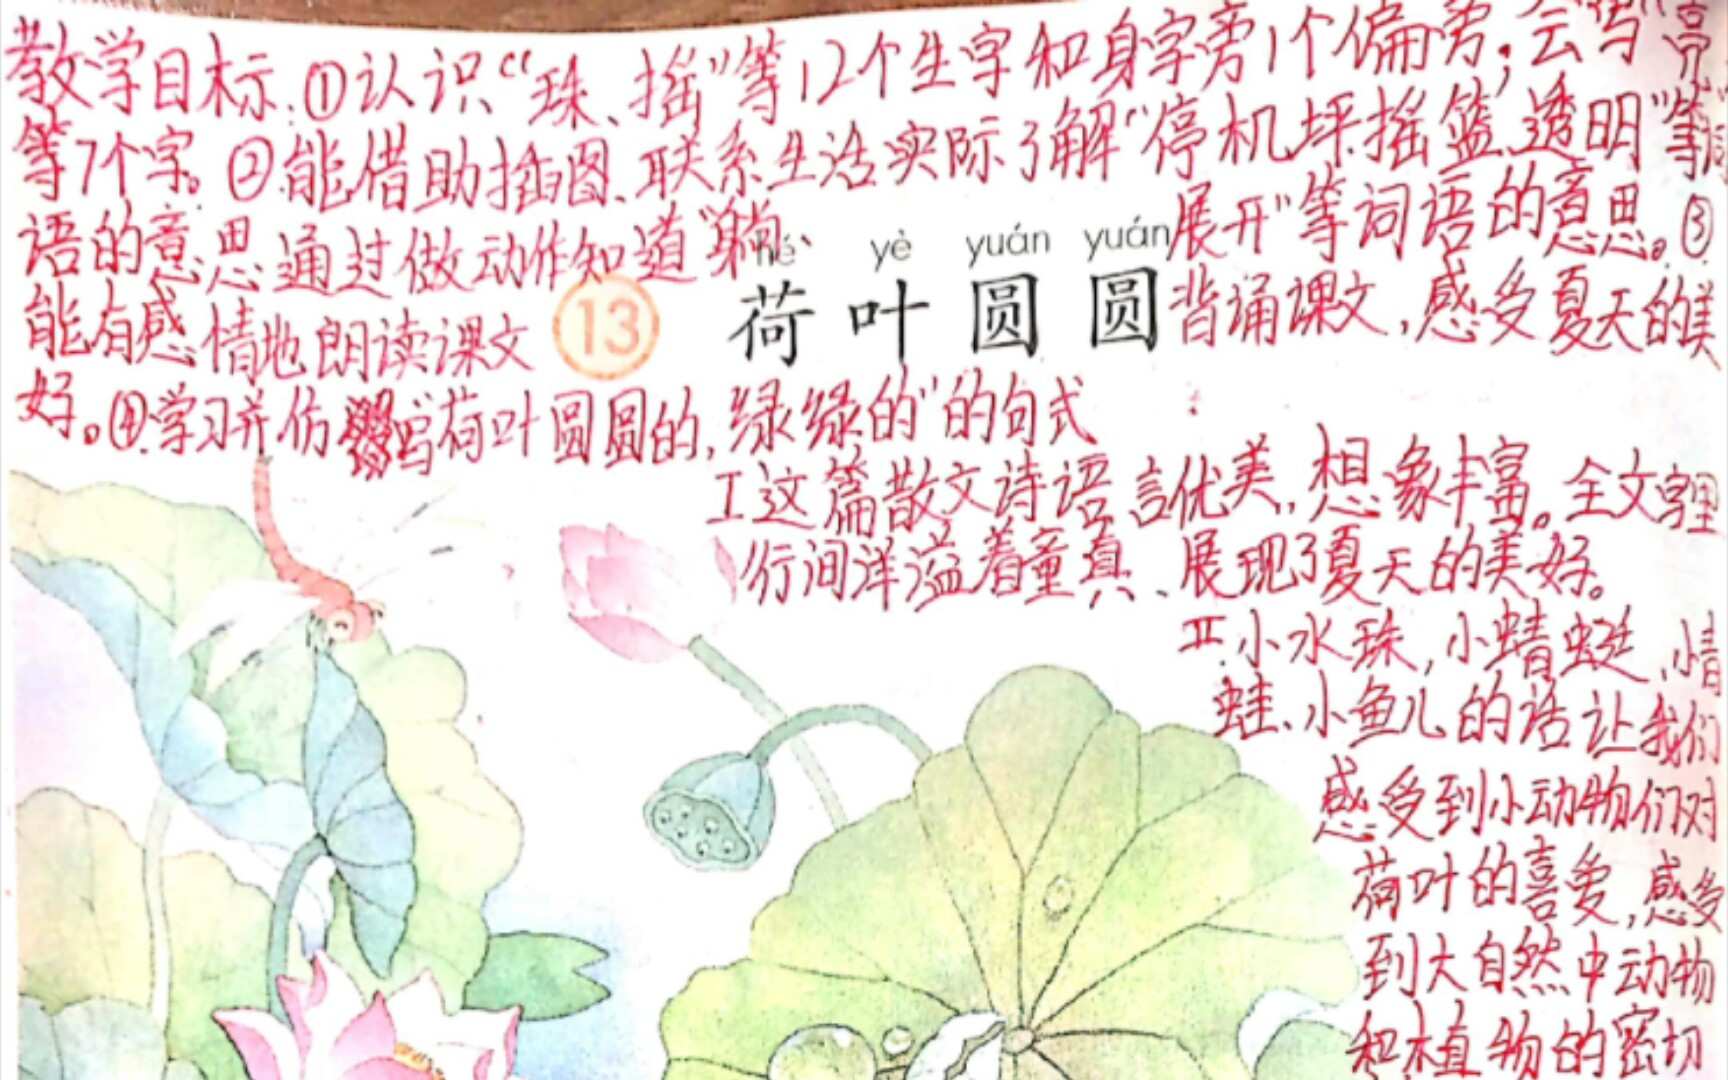 教学目标:①认识“珠、摇”等12个生字和身字旁1个偏旁;会写“亮”
等7个字。②能借助插图、联系生活实际了解“停机坪、摇篮、透明”等词
语的意思,通过做动作知道“躺、
展开”等词语的意思。③
能有感情地朗读课文
hé yè yuán yuán
13 荷叶圆圆
背诵课文,感受夏天的美
好。④学习并仿写荷叶圆圆的,绿绿的"的句式
I这篇散文诗语言优美,想象丰富。全文字里
行间洋溢着童真、展现了夏天的美好。
II.小水珠,小蜻蜓,小青
蛙、小鱼儿的话让我们
感受到小动物们对
荷叶的喜爱,感受
到大自然中动物
和植物的密切